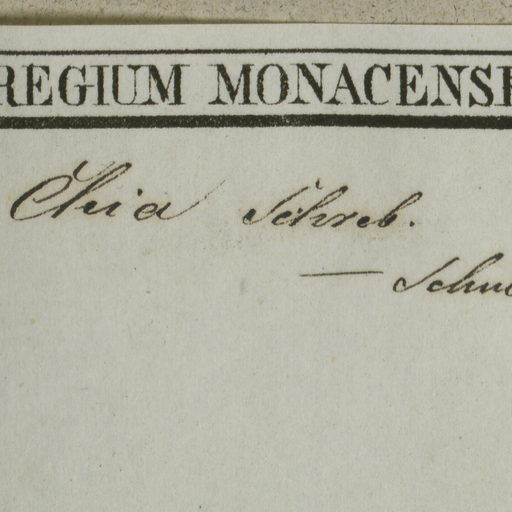 REGIUM MONACENSE
Chia Schreb.
— Schre